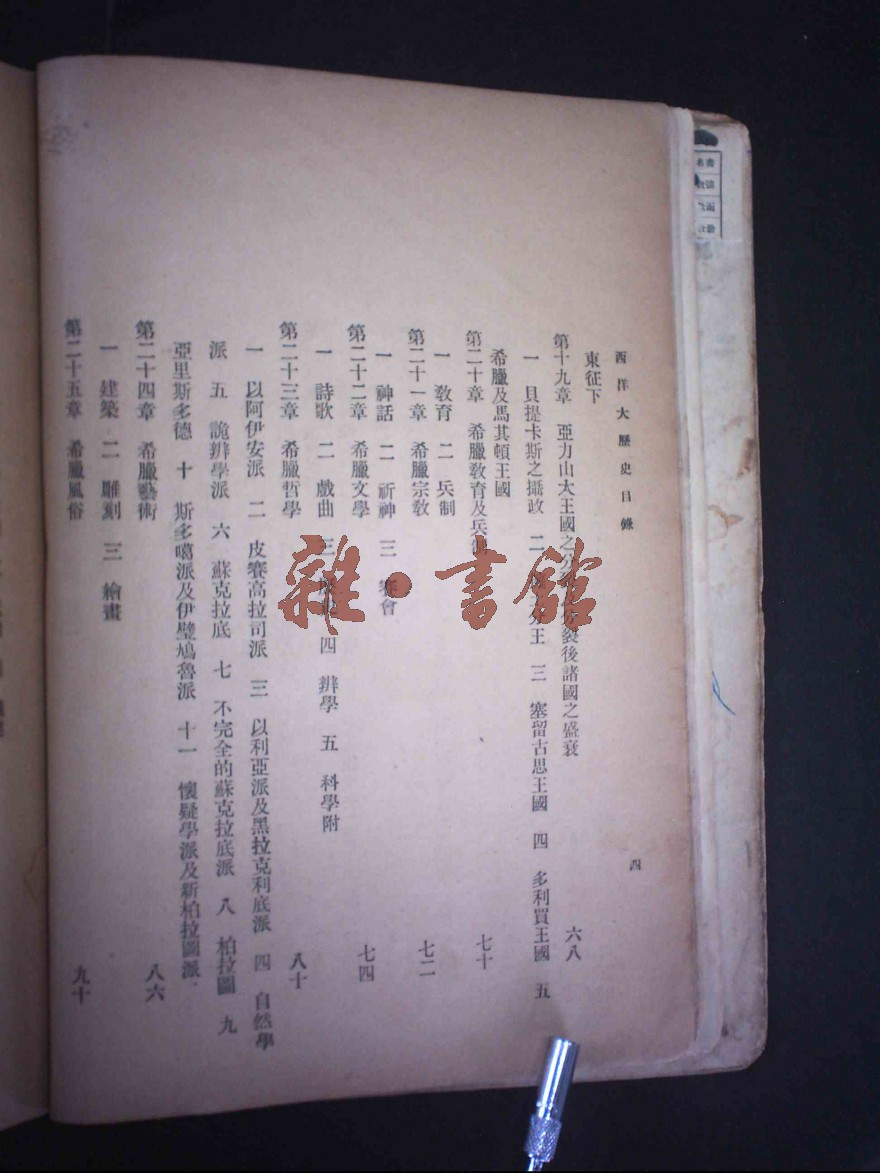 西洋大歷史目錄
四
東征下
第十九章 亞力山大王國之分裂後諸國之盛衰 六八
一 貝提卡斯之攝政 二 分王 三 塞留古思王國 四 多利買王國 五
希臘及馬其頓王國
第二十章 希臘教育及兵制 七十
一 教育 二 兵制
第二十一章 希臘宗教 七二
一 神話 二 祈神 三 賽會
第二十二章 希臘文學 七四
一 詩歌 二 戲曲 三 四 辨學 五 科學附
第二十三章 希臘哲學 八十
一 以阿伊安派 二 皮賽高拉司派 三 以利亞派及黑拉克利底派 四 自然學
派 五 詭辨學派 六 蘇克拉底 七 不完全的蘇克拉底派 八 柏拉圖 九
亞里斯多德 十 斯多噶派及伊壁鳩魯派 十一 懷疑學派及新柏拉圖派
第二十四章 希臘藝術 八六
一 建築 二 雕刻 三 繪畫
第二十五章 希臘風俗 九十
雜·書館